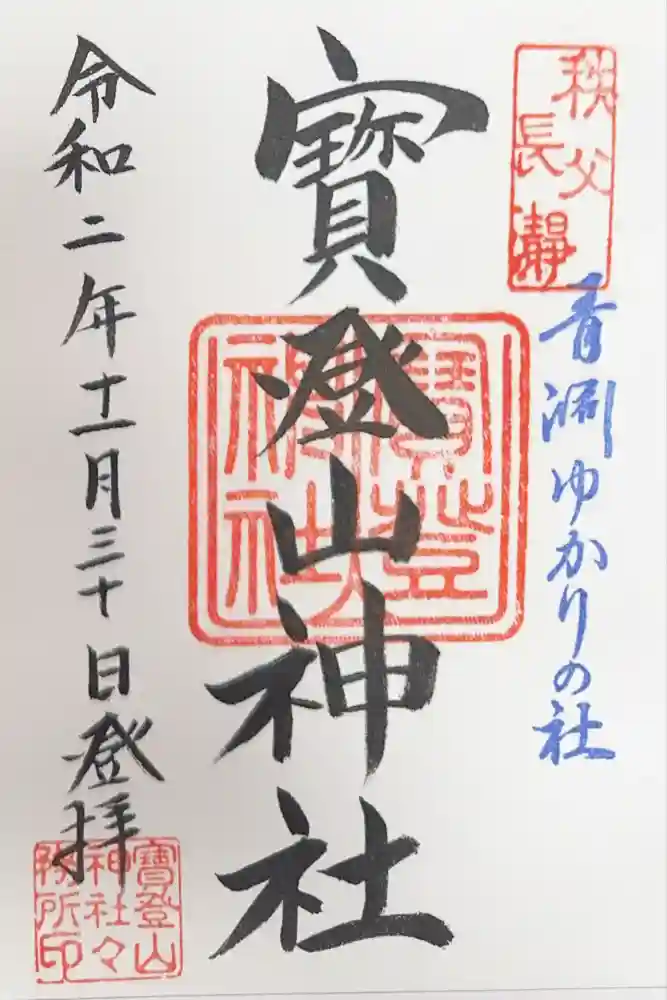 秩父
長瀞
青淵ゆかりの社
寳登山神社
寳登山
神社
令和二年十一月三十日登拝
寳登山
神社々
務所印